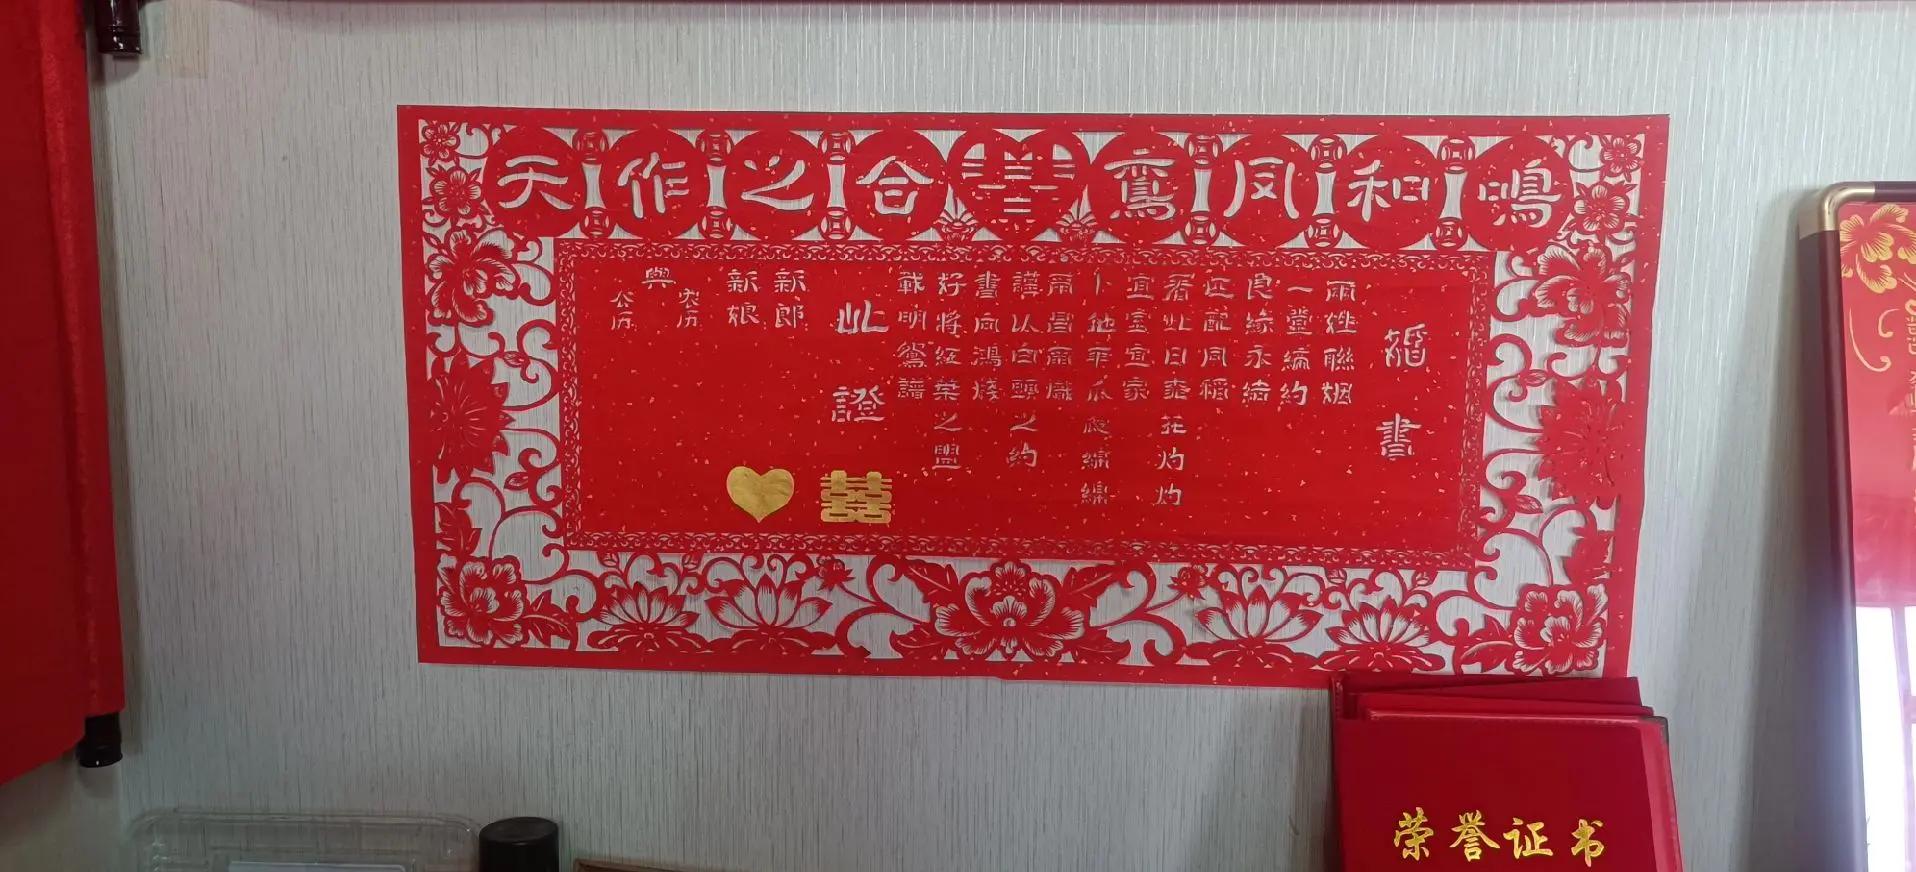 天作之合 囍 鸞凤和鳴
婚書
兩姓聯姻
一堂締約
良緣永結
匹配同稱
看此日桃花灼灼
宜室宜家
卜他年瓜瓞綿綿
爾昌爾熾
謹以白頭之約
書向鴻箋
好將紅葉之盟
載明鴛譜
此證
囍
新郎
新娘
农历
與
公历
荣誉证书